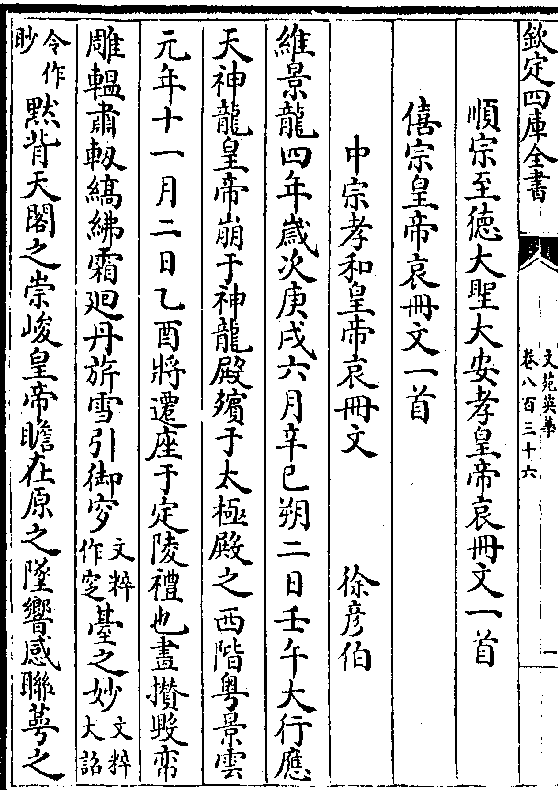 欽定四庫全書
文苑英華
卷八百三十六
一
順宗至德大聖大安孝皇帝哀冊文一首
僖宗皇帝哀冊文一首
中宗孝和皇帝哀冊文 徐彦伯
維景龍四年嵗次庚戌六月辛巳朔二日壬午大行應
天神龍皇帝崩于神龍殿殯于太極殿之西階粤景雲
元年十一月二日乙酉將遷座于定陵禮也畫攢毁帟
雕輼肅軷縞紼霜廻丹旂雪引御穸文粹作窆䑓之妙文粹大詔
令作眇黙背天閣之崇峻皇帝瞻在原之墜響感聯萼之